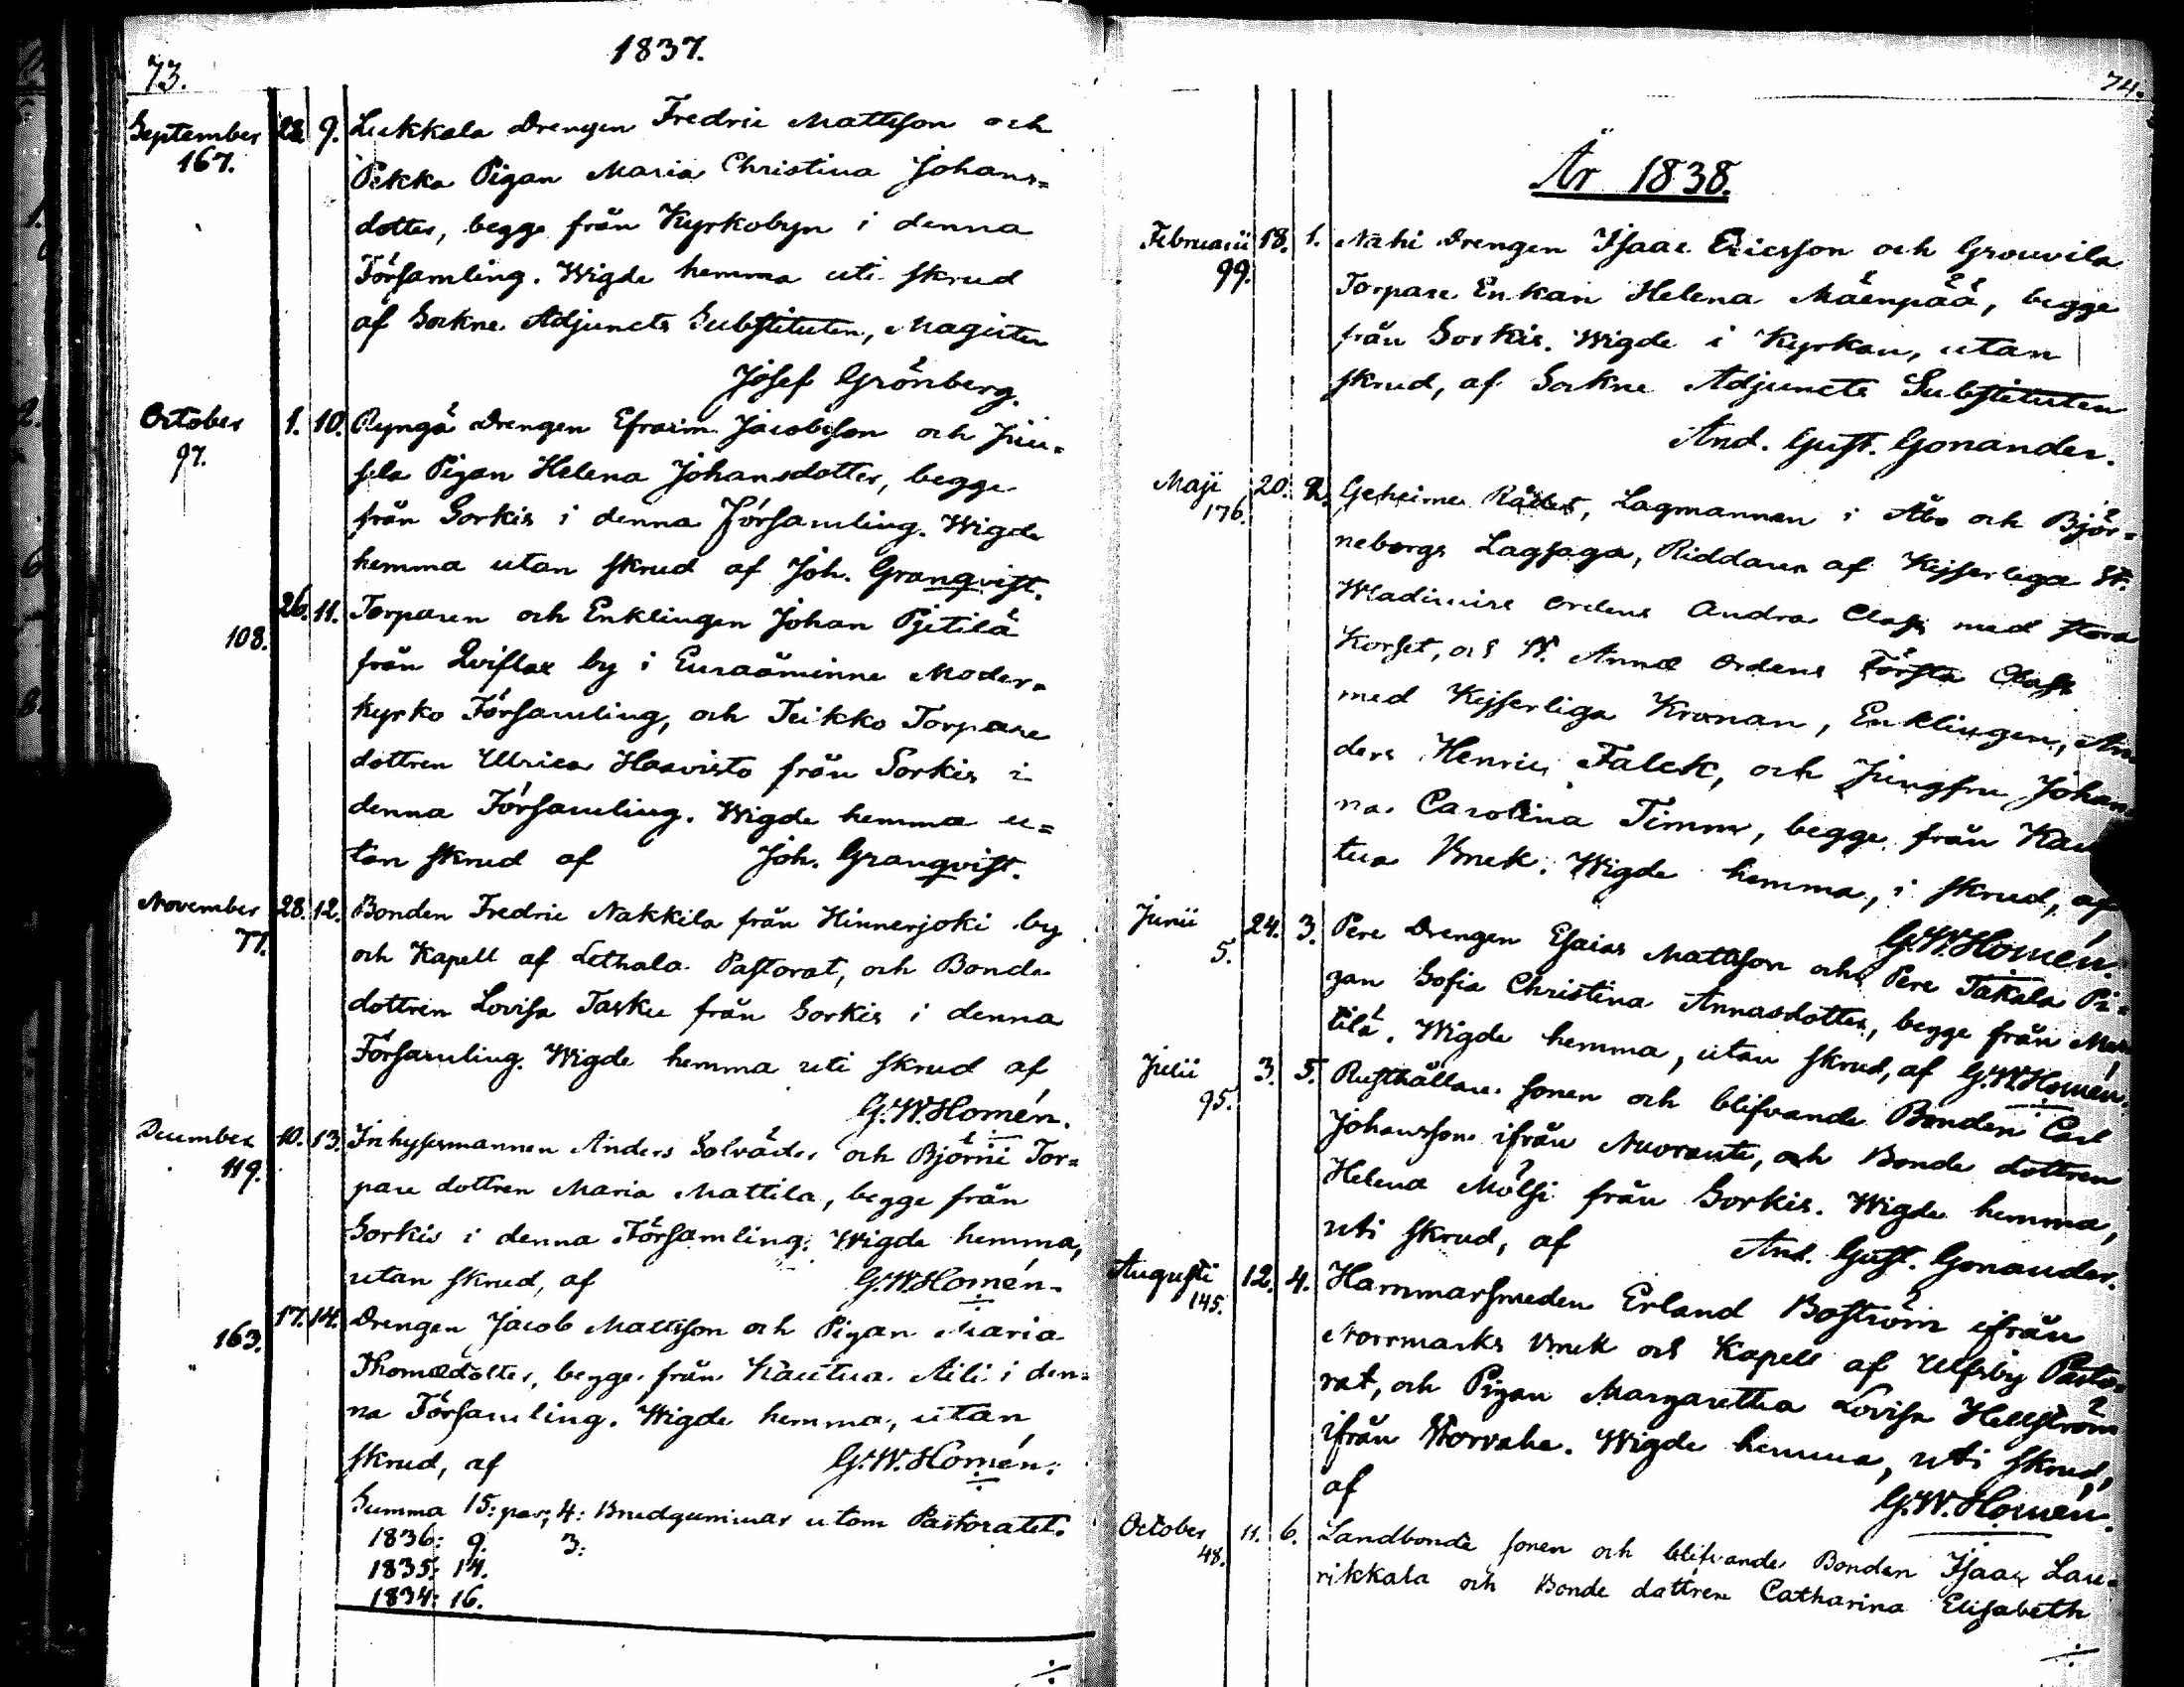 1837.
73.
September 28. 9. Lukkala Drengen Fredric Mattsson och
167. Pekka Pigan Maria Christina Johans=
dotter, begge från Kyrkobyn i denna
Församling. Wigde hemma uti skrud
af Sockne Adjuncts Substituten, Magister
Josef Grönberg.
October 1. 10. Ryngä Drengen Efraim Jacobsson och Juu=
97. sela Pigan Helena Johansdotter, begge
från Sorkis i denna Församling. Wigde
hemma utan skrud af Joh. Granqvist.
26. 11. Torparen och Enklingen Johan Pjetilä
108. från Qviflax by i Euraåminne Moder=
kyrko Församling, och Teikko Torpare
dottren Ulrica Haavisto från Sorkis i
denna Församling. Wigde hemma u=
tan skrud af Joh. Granqvist.
November 28. 12. Bonden Fredric Nakkila från Hinnerjoki by
77. och Kapell af Lethala Pastorat, och Bonde
dottren Lovisa Tasku från Sorkis i denna
Församling. Wigde hemma uti skrud af
G.W. Homén.
December 10. 13. Inhysesmannen Anders Solväster och Björni Tor=
119. pare dottren Maria Mattila, begge från
Sorkis i denna Församling. Wigde hemma,
utan skrud, af G.W. Homén.
17. 14. Drengen Jacob Mattsson och Pigan Maria
163. Thomædotter, begge från Kautua Äili i den=
na Församling. Wigde hemma, utan
skrud, af G.W. Homén.
Summa 15: par; 4: Brudgummar utom Pastoratet.
1836: 9. 3:
1835: 14.
1834: 16.
74.
År 1838.
Februarii 18. 1. Nähi Drengen Isaac Ericsson och Grouvila
99. Torpare Enkan Helena Mäenpää, begge
från Sorkis. Wigde i Kyrkan, utan
skrud, af Sockne Adjuncts Substituten
And. Gust. Gonander.
Maji 20. 2. Geheime Rådet, Lagmannen i Åbo och Björ=
176. neborgs Lagsaga, Riddaren af Kejserliga St.
Wladimirs Ordens Andra Class med stora
Korset, och St. Annæ Ordens Första Class
med Kejserliga Kronan, Enklingen, An
ders Henric Falck, och Jungfru Johan=
na Carolina Timm, begge från Kau
tua Bruk. Wigde hemma, i skrud, af
G.W. Homén.
Junii 24. 3. Pere Drengen Esaias Mattsson och Pere Takala Pi=
5. gan Sofia Christina Annasdotter, begge från
tilä. Wigde hemma, utan skrud, af G.W. Homén.
Julii 3. 5. Rusthållare sonen och blifvande Bonden Carl
95. Johansson ifrån Nuorante, och Bonde dottren
Helena Mölsi från Sorkis. Wigde hemma,
uti skrud, af And. Gust. Gonander.
Augusti 12. 4. Hammarsmeden Erland Boström ifrån
145. Norrmarks Bruk och Kapell af Ulfsby Pasto=
rat, och Pigan Margaretha Lovisa Hellström
ifrån Worvahe. Wigde hemma, uti skrud,
af G.W. Homén.
October 11. 6. Landbonde sonen och blifvande Bonden Isaac Lau=
48. rikkala och Bonde dottren Catharina Elisabeth